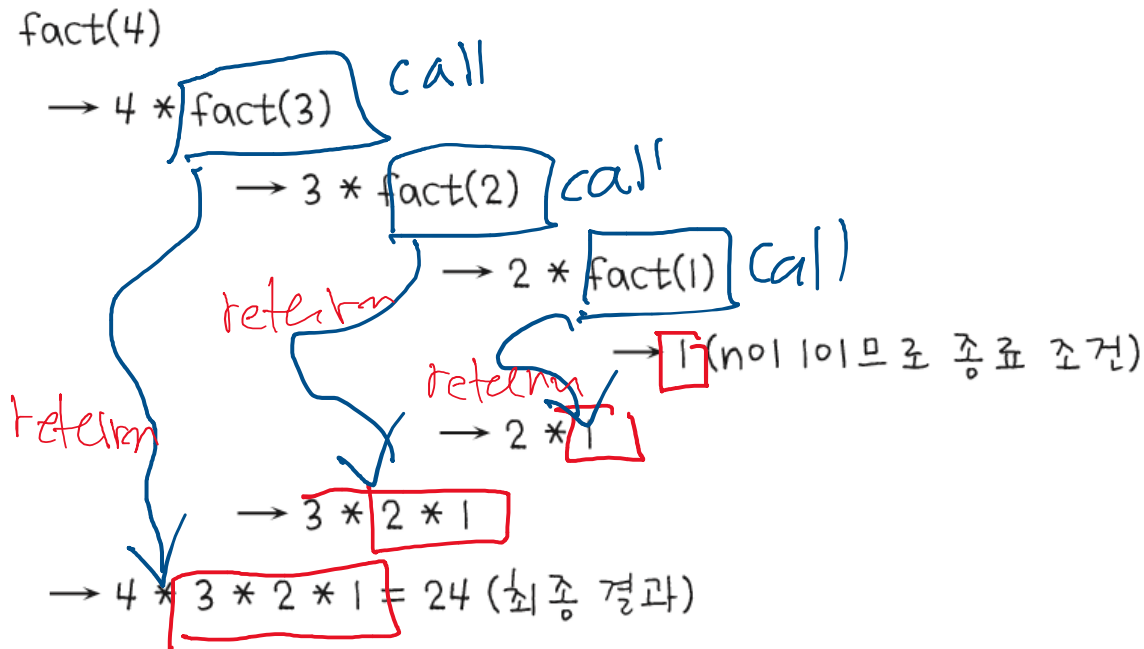 fact(4)
→ 4 * fact(3) call
→ 3 * fact(2) call
→ 2 * fact(1) call
→ 1 (n이 1이므로 종료 조건)
return
return
→ 2 * 1
return
→ 3 * 2 * 1
→ 4 * 3 * 2 * 1 = 24 (최종 결과)